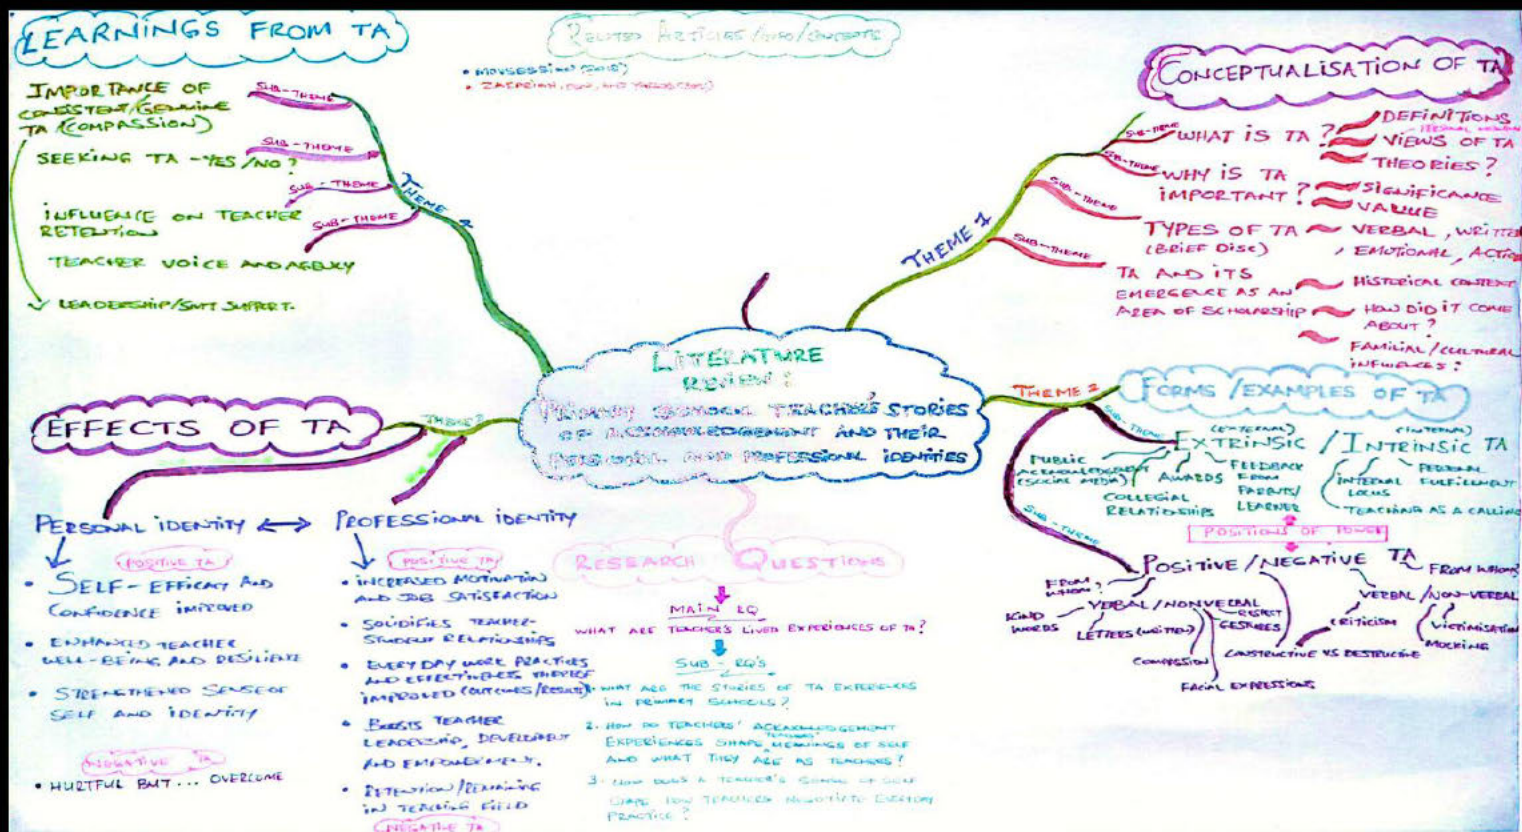 LEARNINGS FROM TA
IMPORTANCE OF
CONSISTENT/GENUINE
TA (COMPASSION)
SUB-THEME
SEEKING TA - YES/NO?
SUB-THEME
SUB-THEME
INFLUENCE ON TEACHER
RETENTION
SUB-THEME
TEACHER VOICE AND AGENCY
LEADERSHIP/SMT SUPPORT.
THEME 4
RELATED ARTICLES/INFO/CONCEPTS
• MOVSESSIAN (2018)
CONCEPTUALISATION OF TA
THEME 1
SUB-THEME
WHAT IS TA?
DEFINITIONS
VIEWS OF TA
THEORIES?
SUB-THEME
WHY IS TA
IMPORTANT?
SIGNIFICANCE
VALUE
SUB-THEME
TYPES OF TA
(BRIEF DISC)
VERBAL, WRITTEN
, EMOTIONAL, ACTION
SUB-THEME
TA AND ITS
EMERGENCE AS AN
AREA OF SCHOLARSHIP
HISTORICAL CONTEXT
HOW DID IT COME
ABOUT?
FAMILIAL/CULTURAL
INFLUENCES?
LITERATURE
REVIEW:
PRIMARY SCHOOL TEACHER'S STORIES
OF ACKNOWLEDGEMENT AND THEIR
PERSONAL AND PROFESSIONAL IDENTITIES
THEME 2
FORMS/EXAMPLES OF TA
SUB-THEME
(EXTERNAL)
(INTERNAL)
EXTRINSIC / INTRINSIC TA
PUBLIC
ACKNOWLEDGEMENT
(SOCIAL MEDIA)
COLLEGIAL
RELATIONSHIPS
AWARDS
FEEDBACK
FROM
PARENTS/
LEARNER
INTERNAL
LOCUS
PERSONAL
FULFILLMENT
TEACHING AS A CALLING
POSITIONS OF POWER
SUB-THEME
POSITIVE/NEGATIVE TA
FROM
WHOM?
FROM WHOM?
VERBAL/NONVERBAL
KIND
WORDS
LETTERS (WRITTEN)
COMPASSION
FACIAL EXPRESSIONS
RESPECT
GESTURES
CONSTRUCTIVE VS DESTRUCTIVE
VERBAL/NON-VERBAL
CRITICISM
VICTIMISATION
MOCKING
EFFECTS OF TA
THEME 3
PERSONAL IDENTITY ↔ PROFESSIONAL IDENTITY
POSITIVE TA
• SELF-EFFICACY AND
CONFIDENCE IMPROVED
• ENHANCED TEACHER
WELL-BEING AND RESILIENCE
• STRENGTHENED SENSE OF
SELF AND IDENTITY
NEGATIVE TA
• HURTFUL BUT... OVERCOME
POSITIVE TA
• INCREASED MOTIVATION
AND JOB SATISFACTION
• SOLIDIFIES TEACHER-
STUDENT RELATIONSHIPS
• EVERYDAY WORK PRACTICES
AND EFFECTIVENESS THEREOF
IMPROVED (OUTCOMES/RESULTS)
• BOOSTS TEACHER
LEADERSHIP, DEVELOPMENT
AND EMPOWERMENT.
• RETENTION/REMAINING
IN TEACHING FIELD
NEGATIVE TA
RESEARCH QUESTIONS
MAIN RQ
WHAT ARE TEACHER'S LIVED EXPERIENCES OF TA?
SUB-RQ'S
1. WHAT ARE THE STORIES OF TA EXPERIENCES
IN PRIMARY SCHOOLS?
2. HOW DO TEACHERS' ACKNOWLEDGEMENT
EXPERIENCES SHAPE TEACHERS' MEANINGS OF SELF
AND WHAT THEY ARE AS TEACHERS?
3. HOW DOES A TEACHER'S SENSE OF SELF
SHAPE HOW TEACHERS NEGOTIATE EVERYDAY
PRACTICE?